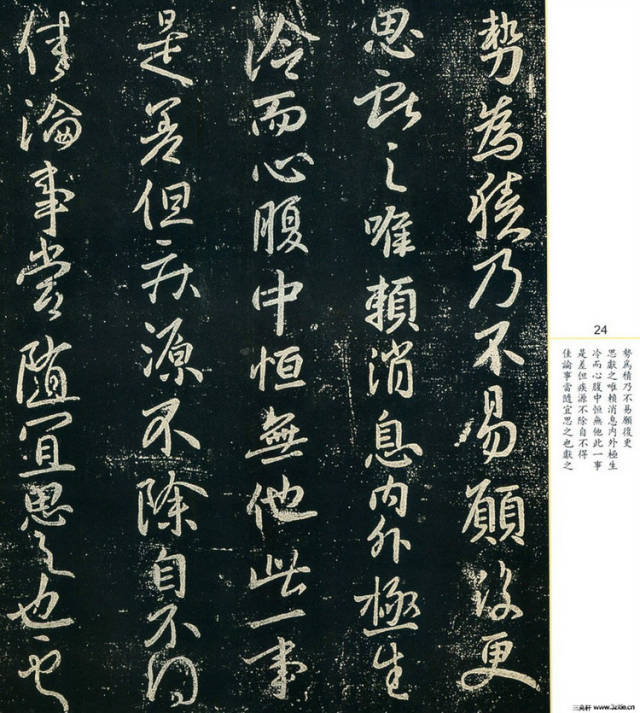 勢為積乃不易願復更
思獻之唯賴消息內外極生
冷而心腹中恒無他此一事
是差但疾源不除自不得
佳論事當隨宜思之也獻之
24
勢為積乃不易願復更
思獻之唯賴消息內外極生
冷而心腹中恒無他此一事
是差但疾源不除自不得
佳論事當隨宜思之也獻之